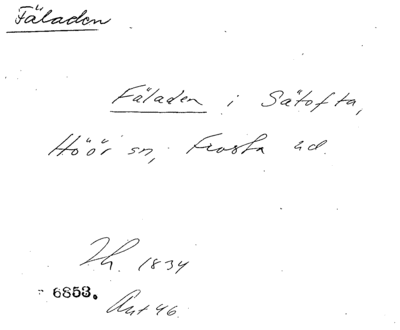 Fäladen
Fäladen i Sätofta,
Höör sn, Frosta hd.
Lh. 1834
6853.
Akt 46